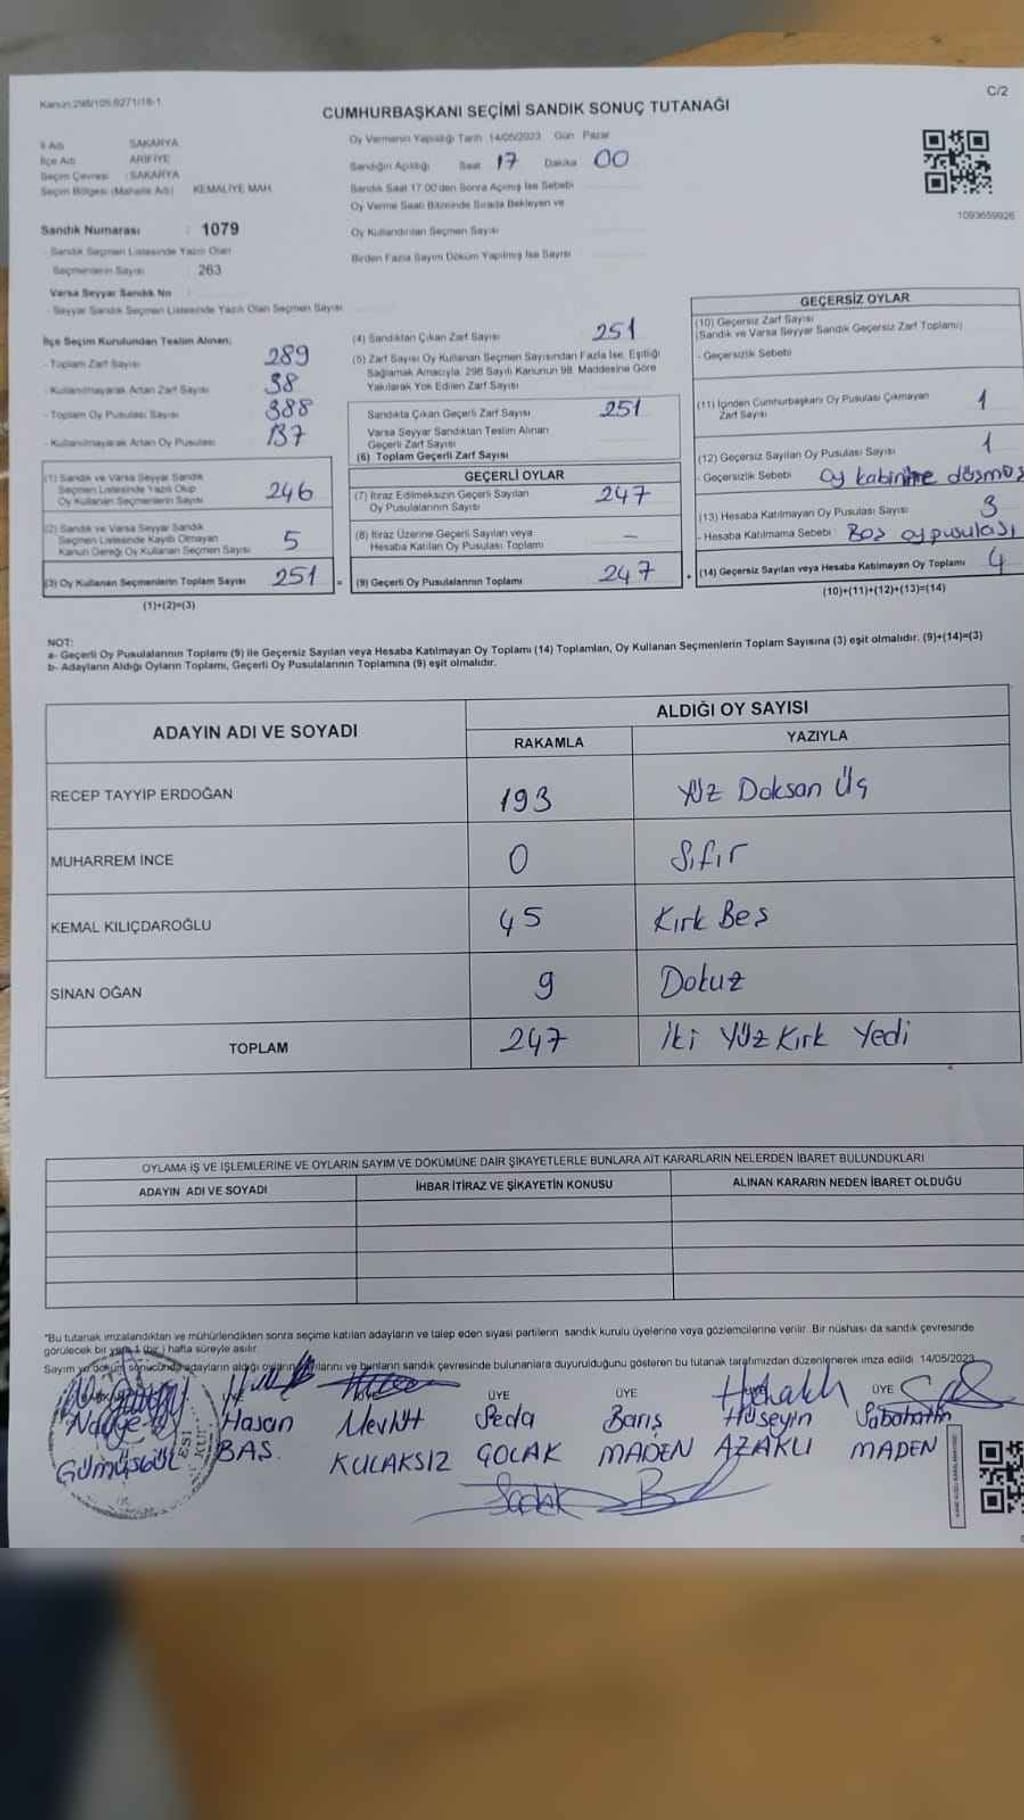 Kanun:298/105.6271/18-1
C/2
CUMHURBAŞKANI SEÇİMİ SANDIK SONUÇ TUTANAĞI
İl Adı SAKARYA
İlçe Adı ARİFİYE
Seçim Çevresi : SAKARYA
Seçim Bölgesi (Mahalle Adı) KEMALİYE MAH.
Oy Vermenin Yapıldığı Tarih 14/05/2023 Gün Pazar
Sandığın Açıldığı Saat 17 Dakika 00
Sandık Saat 17.00'den Sonra Açılmış İse Sebebi
Oy Verme Saati Bitiminde Sırada Bekleyen ve
Oy Kullandırılan Seçmen Sayısı
Birden Fazla Sayım Döküm Yapılmış İse Sayısı
1093659926
Sandık Numarası : 1079
- Sandık Seçmen Listesinde Yazılı Olan
Seçmenlerin Sayısı 263
Varsa Seyyar Sandık No
- Seyyar Sandık Seçmen Listesinde Yazılı Olan Seçmen Sayısı
İlçe Seçim Kurulundan Teslim Alınan;
- Toplam Zarf Sayısı 289
- Kullanılmayarak Artan Zarf Sayısı 38
- Toplam Oy Pusulası Sayısı 388
- Kullanılmayarak Artan Oy Pusulası 137
(1) Sandık ve Varsa Seyyar Sandık
Seçmen Listesinde Yazılı Olup
Oy Kullanan Seçmenlerin Sayısı 246
(2) Sandık ve Varsa Seyyar Sandık
Seçmen Listesinde Kayıtlı Olmayan
Kanun Gereği Oy Kullanan Seçmen Sayısı 5
(3) Oy Kullanan Seçmenlerin Toplam Sayısı 251
(1)+(2)=(3)
(4) Sandıktan Çıkan Zarf Sayısı 251
(5) Zarf Sayısı Oy Kullanan Seçmen Sayısından Fazla İse, Eşitliği
Sağlamak Amacıyla, 298 Sayılı Kanunun 98. Maddesine Göre
Yakılarak Yok Edilen Zarf Sayısı
Sandıkta Çıkan Geçerli Zarf Sayısı 251
Varsa Seyyar Sandıktan Teslim Alınan
Geçerli Zarf Sayısı
(6) Toplam Geçerli Zarf Sayısı
GEÇERLİ OYLAR
(7) İtiraz Edilmeksizin Geçerli Sayılan
Oy Pusulalarının Sayısı 247
(8) İtiraz Üzerine Geçerli Sayılan veya
Hesaba Katılan Oy Pusulası Toplamı -
= (9) Geçerli Oy Pusulalarının Toplamı 247 +
GEÇERSİZ OYLAR
(10) Geçersiz Zarf Sayısı
(Sandık ve Varsa Seyyar Sandık Geçersiz Zarf Toplamı)
- Geçersizlik Sebebi
(11) İçinden Cumhurbaşkanı Oy Pusulası Çıkmayan
Zarf Sayısı 1
(12) Geçersiz Sayılan Oy Pusulası Sayısı 1
- Geçersizlik Sebebi Oy kabinine düşmüş
(13) Hesaba Katılmayan Oy Pusulası Sayısı 3
- Hesaba Katılmama Sebebi : Boş oy pusulası
(14) Geçersiz Sayılan veya Hesaba Katılmayan Oy Toplamı 4
(10)+(11)+(12)+(13)=(14)
NOT:
a- Geçerli Oy Pusulalarının Toplamı (9) ile Geçersiz Sayılan veya Hesaba Katılmayan Oy Toplamı (14) Toplamları, Oy Kullanan Seçmenlerin Toplam Sayısına (3) eşit olmalıdır. (9)+(14)=(3)
b- Adayların Aldığı Oyların Toplamı, Geçerli Oy Pusulalarının Toplamına (9) eşit olmalıdır.
ADAYIN ADI VE SOYADI
ALDIĞI OY SAYISI
RAKAMLA YAZIYLA
RECEP TAYYİP ERDOĞAN 193 Yüz Doksan Üç
MUHARREM İNCE 0 Sıfır
KEMAL KILIÇDAROĞLU 45 Kırk Beş
SİNAN OĞAN 9 Dokuz
TOPLAM 247 İki Yüz Kırk Yedi
OYLAMA İŞ VE İŞLEMLERİNE VE OYLARIN SAYIM VE DÖKÜMÜNE DAİR ŞİKAYETLERLE BUNLARA AİT KARARLARIN NELERDEN İBARET BULUNDUKLARI
ADAYIN ADI VE SOYADI İHBAR İTİRAZ VE ŞİKAYETİN KONUSU ALINAN KARARIN NEDEN İBARET OLDUĞU
"Bu tutanak imzalandıktan ve mühürlendikten sonra seçime katılan adayların ve talep eden siyasi partilerin sandık kurulu üyelerine veya gözlemcilerine verilir. Bir nüshası da sandık çevresinde
görülecek bir yere 1 (bir) hafta süreyle asılır.
Sayım ve döküm sonucunda adayların aldığı oyların ve bunların sandık çevresinde bulunanlara duyurulduğunu gösteren bu tutanak tarafımızdan düzenlenerek imza edildi. 14/05/2023
ÜYE ÜYE ÜYE
Hasan Mevlüt Seda Barış Hüseyin Sabahattin
Gümüşgül BAŞ KULAKSIZ ÇOLAK MADEN AZAKLI MADEN